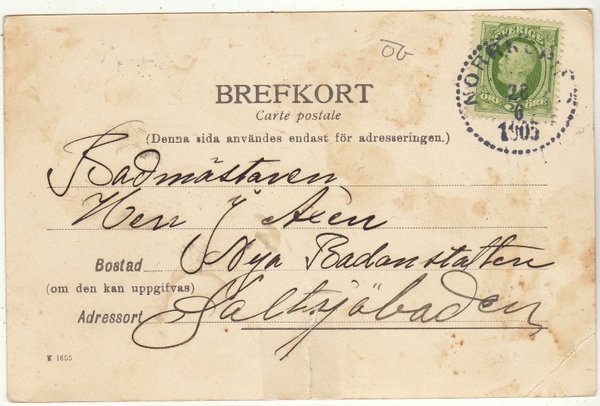 ob
SVERIGE
NORRKÖPING
28
6
1905
BREFKORT
Carte postale
(Denna sida användes endast för adresseringen.)
Badmästaren
Herr J Axén
Bostad Nya Badanstalten
(om den kan uppgifvas)
Adressort Saltsjöbaden
1655